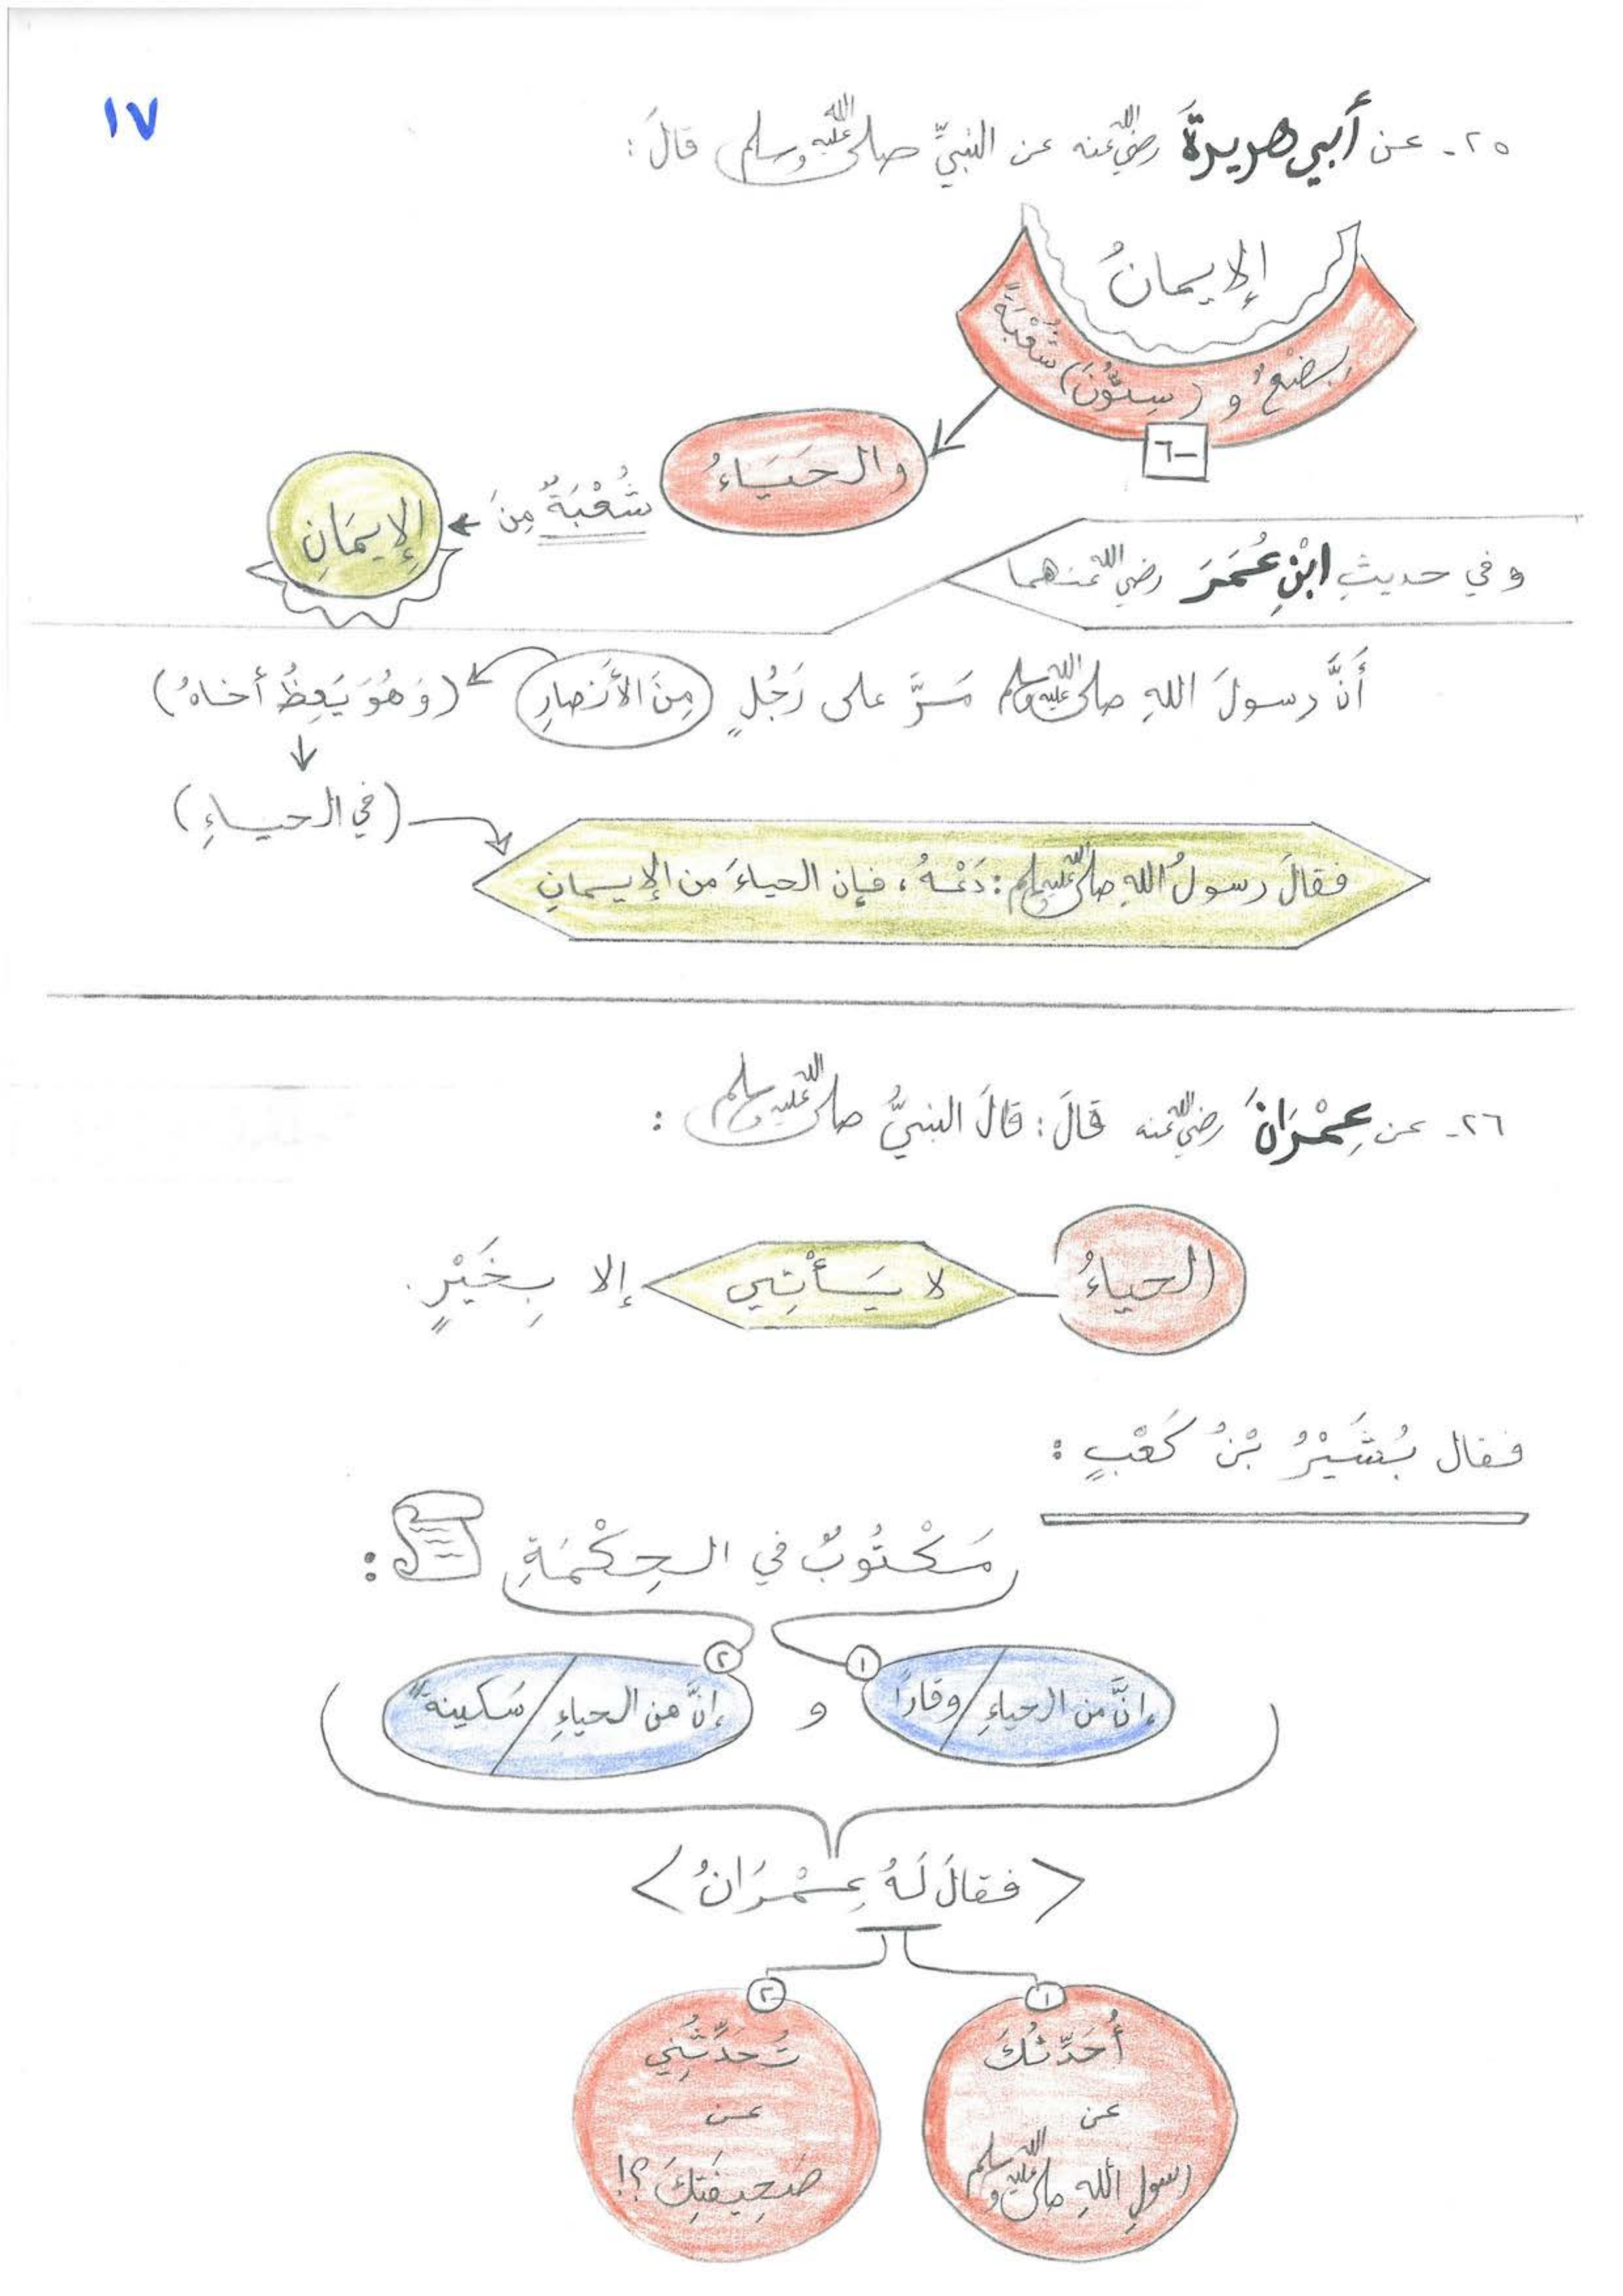 ١٧
٢٥- عن أبي هريرةَ رضي الله عنه عن النبيِّ صلى الله عليه وسلم قالَ:
الإيمانُ
بِضْعٌ و (سِتُّونَ) شُعْبَةً
٦٠
والحَيَاءُ شُعْبَةٌ مِنَ الإِيمَانِ
وفي حديثِ ابْنِ عُمَرَ رضي الله عنهما
أَنَّ رسولَ اللهِ صلى الله عليه وسلم مَرَّ على رَجُلٍ (مِنَ الأَنصارِ) (وَهُوَ يَعِظُ أخاهُ)
(في الحياءِ)
فقالَ رسولُ اللهِ صلى الله عليه وسلم: دَعْهُ، فإن الحياءَ من الإيمانِ
٢٦- عن عِمْرَانَ رضي الله عنه قالَ: قالَ النبيُّ صلى الله عليه وسلم:
الحياءُ لا يَأْتِي إلا بِخَيْرٍ.
فقال بُشَيْرُ بْنُ كَعْبٍ:
مَكْتُوبٌ في الحِكْمَةِ:
١ إنَّ من الحياءِ / وقارًا و ٢ إنَّ من الحياءِ / سَكينةً
<فقالَ لَهُ عِمْرَانُ>
١ أُحَدِّثُكَ
عن
رسولِ اللهِ صلى الله عليه وسلم
٢ تُحَدِّثُنِي
عن
صَحِيفَتِكَ؟!